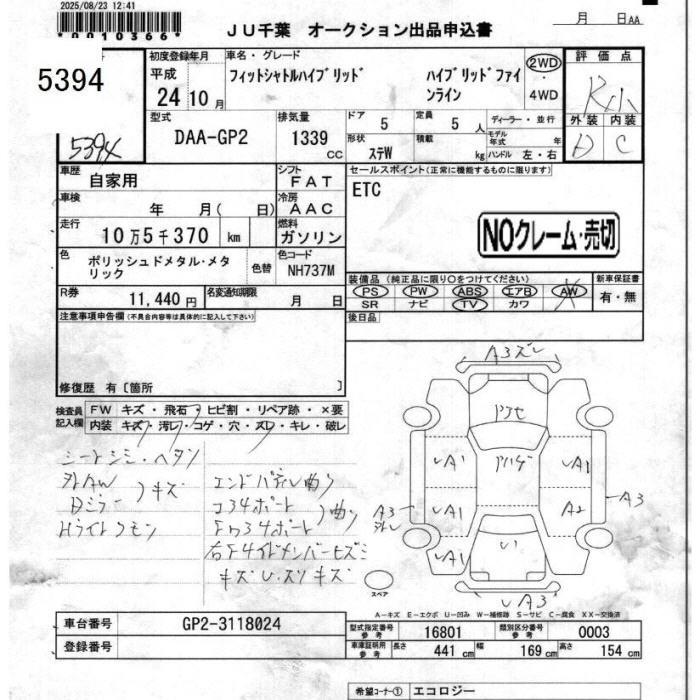 2025/08/23 12:41
*0010366*
JU千葉 オークション出品申込書
月 日AA
5394
5394
初度登録年月
平成
24 10月
車名・グレード
フィットシャトルハイブリッド ハイブリッドファインライン
2WD
・
4WD
評価点
外装 内装
D C
型式
DAA-GP2
排気量
1339
cc
ドア 5
定員 5 人
ディーラー・並行
モデル年式 年
形状 ステW
積載 kg
ハンドル 左・右
車歴
自家用
シフト
FAT
セールスポイント(正常に機能するものに限ります)
ETC
車検
年 月( 日)
冷房
AAC
走行
10万5千370 km
燃料
ガソリン
NOクレーム・売切
色
ポリッシュドメタル・メタリック
色替
色コード
NH737M
装備品(純正品に限り○をつけてください)
PS PW ABS エアB AW
SR ナビ TV カワ
新車保証書
有・無
R券
11,440円
名変通知期限
月 日
後日品
注意事項申告欄(不具合内容等は具体的に記入して下さい)
修復歴 有〔箇所 〕
検査員記入欄
FW キズ・飛石・ヒビ割・リペア跡・×要
内装 キズ・汚レ・コゲ・穴・スレ・キレ・破レ
シートシミ・ヘタン
外AW
Dミラー
キズ
Hライトクモン
エンドパネル曲り
コ34ポート
曲り
A3ズレ
UA1
UA1
UA1
UA1
A2
A3
A3
UA3
い
スペア
A-キズ E-エクボ U-凹み W-補修跡 S-サビ C-腐食 XX-交換済
車台番号
GP2-3118024
登録番号
型式指定番号 参考
16801
類別区分番号 参考
0003
車庫証明用 参考
長さ 441cm
幅 169cm
高さ 154cm
希望コーナー① エコロジー